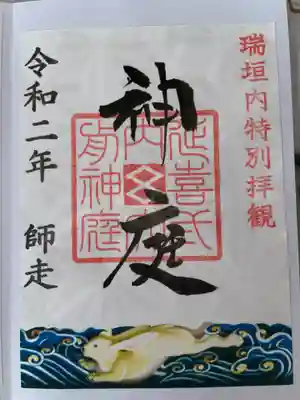 瑞垣内特別拝観
神庭
延喜式
内
肖神庭
令和二年 師走